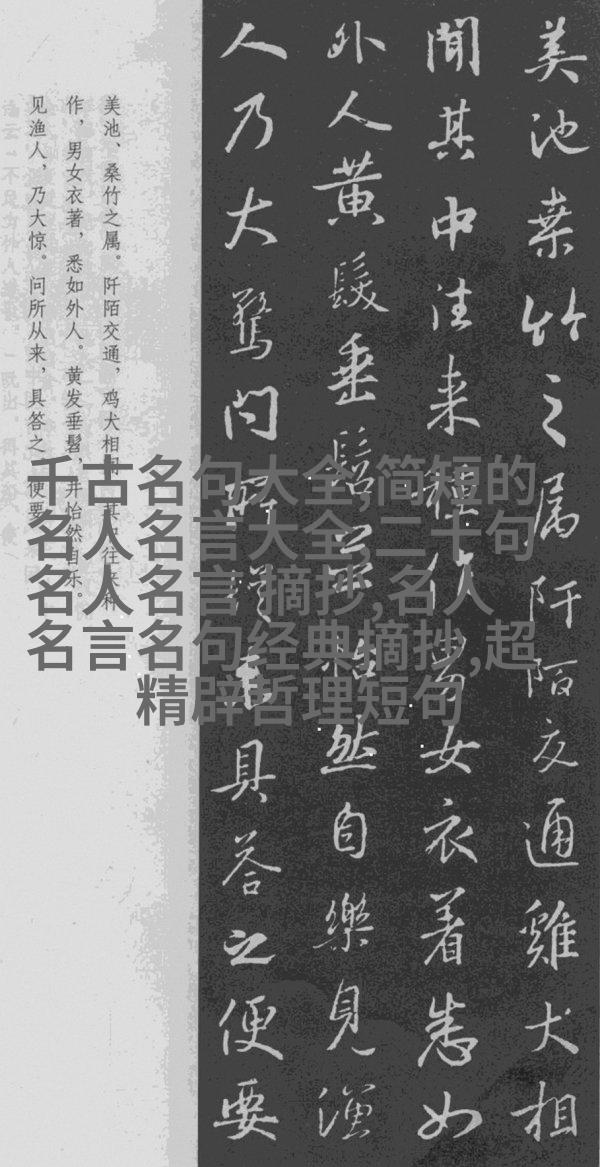 美池桑竹之属阡陌交通雞犬相
聞其中往来種作男女衣着悉如
外人黄髮垂髫并怡然自樂見漁
人乃大驚問所從来具荅之便要
美池、桑竹之属。阡陌交通，鸡犬相闻。其中往来种
作，男女衣著，悉如外人。黄发垂髫，并怡然自乐。
见渔人，乃大惊。问所从来，具答之。便要
千古名句大全,简短的
名人名言大全,二十句
名人名言摘抄,名人
名言名句经典摘抄,超
精辟哲理短句